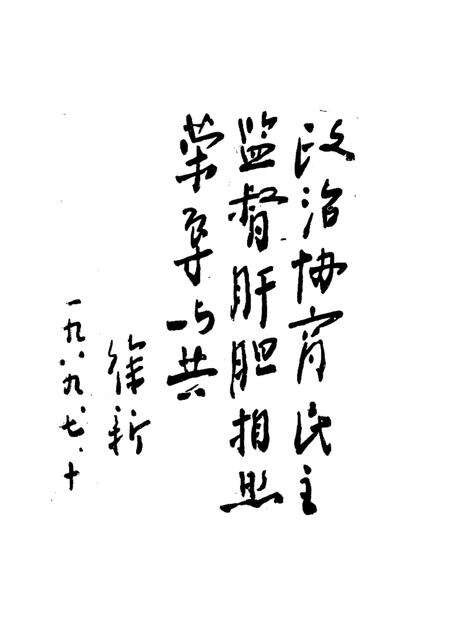 政治协商民主
监督肝胆相照
荣辱与共
徐新
一九八九、七、十